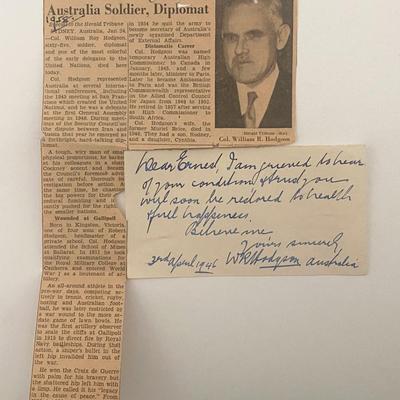 1958
Australia Soldier, Diplomat
Special to the Herald Tribune
SYDNEY, Australia, Jan. 24.
—Col. William Roy Hodgson,
sixty-five, soldier, diplomat
and one of the most colorful
of the early delegates to the
United Nations, died here
today.
Col. Hodgson represented
Australia at several interna-
tional conferences, including
the 1945 meeting at San Fran-
cisco which created the United
Nations, and he was a delegate
at the first General Assembly
meeting in 1946. During meet-
ings of the Security Council on
the dispute between Iran and
Russia that year he emerged as
a forthright, hard-talking dip-
lomat.
A tough, wiry man of small
physical proportions, he barked
at his colleagues in a sharp
Cockney accent and became
the Council's foremost advo-
cate of careful, thorough in-
vestigation before action. At
the same time, he
the big powers for their
fumbling and in-
cessantly pushed for the rights
of the smaller nations.
Wounded at Gallipoli
Born in Kingston, Victoria,
one of four sons of Robert
Hodgson, headmaster of a
private school, Col. Hodgson
attended the School of Mines
at Ballarat. In 1911 he took
qualifying examinations for
the Royal Military College at
Canberra, and entered World
War I as a lieutenant of ar-
tillery.
An all-around athlete in the
pre-war days, competing ac-
tively in tennis, cricket, rugby,
boxing and Australian foot-
ball, he was later restricted by
a war wound to the more se-
date game of lawn bowls. He
was the first artillery observer
to scale the cliffs at Gallipoli
in 1915 to direct fire by Royal
Navy battleships. During that
action, a sniper's bullet in the
left hip invalided him out of
the war.
He won the Croix de Guerre
with palm for his bravery but
the shattered hip left him with
a limp. He called it his "legacy
in the cause of peace." From
in 1934 he quit the army to
become secretary of Australia's
newly organized Department
of External Affairs.
Diplomatic Career
Col. Hodgson was named
temporary Australian High
Commissioner to Canada in
January, 1945, and a few
months later, Minister to Paris.
Later he became Ambassador
to Paris and was the British
Commonwealth representative
on the Allied Control Council
for Japan from 1949 to 1952.
He retired in 1957 after serving
as High Commissioner to
South Africa.
Col. Hodgson's wife, the
former Muriel Brice, died in
1946. They had a son, Rodney,
and a daughter, Cynthia.
Herald Tribune
Col. William R. Hodgson
Dear Ernest, I am grieved to hear
of your condition & trust you
will soon be restored to health
& full happiness.
Believe me
Yours sincerely
3rd April 1946 WRHodgson Australia